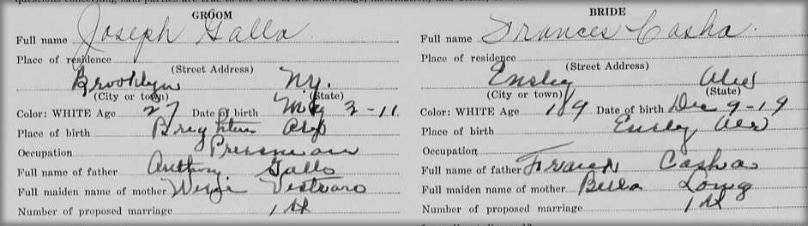 GROOM
Full name Joseph Gallo
Place of residence
(Street Address)
Brooklyn N.Y.
(City or town) (State)
Color: WHITE Age 27 Date of birth 3-11
Place of birth
Occupation Pressman
Full name of father Anthony Gallo
Full maiden name of mother
Number of proposed marriage 1st
BRIDE
Full name Frances Casha
Place of residence
(Street Address)
Ensley Ala
(City or town) (State)
Color: WHITE Age 19 Date of birth Dec 9-19
Place of birth Ensley Ala
Occupation
Full name of father Casha
Full maiden name of mother Bella Long
Number of proposed marriage 1st